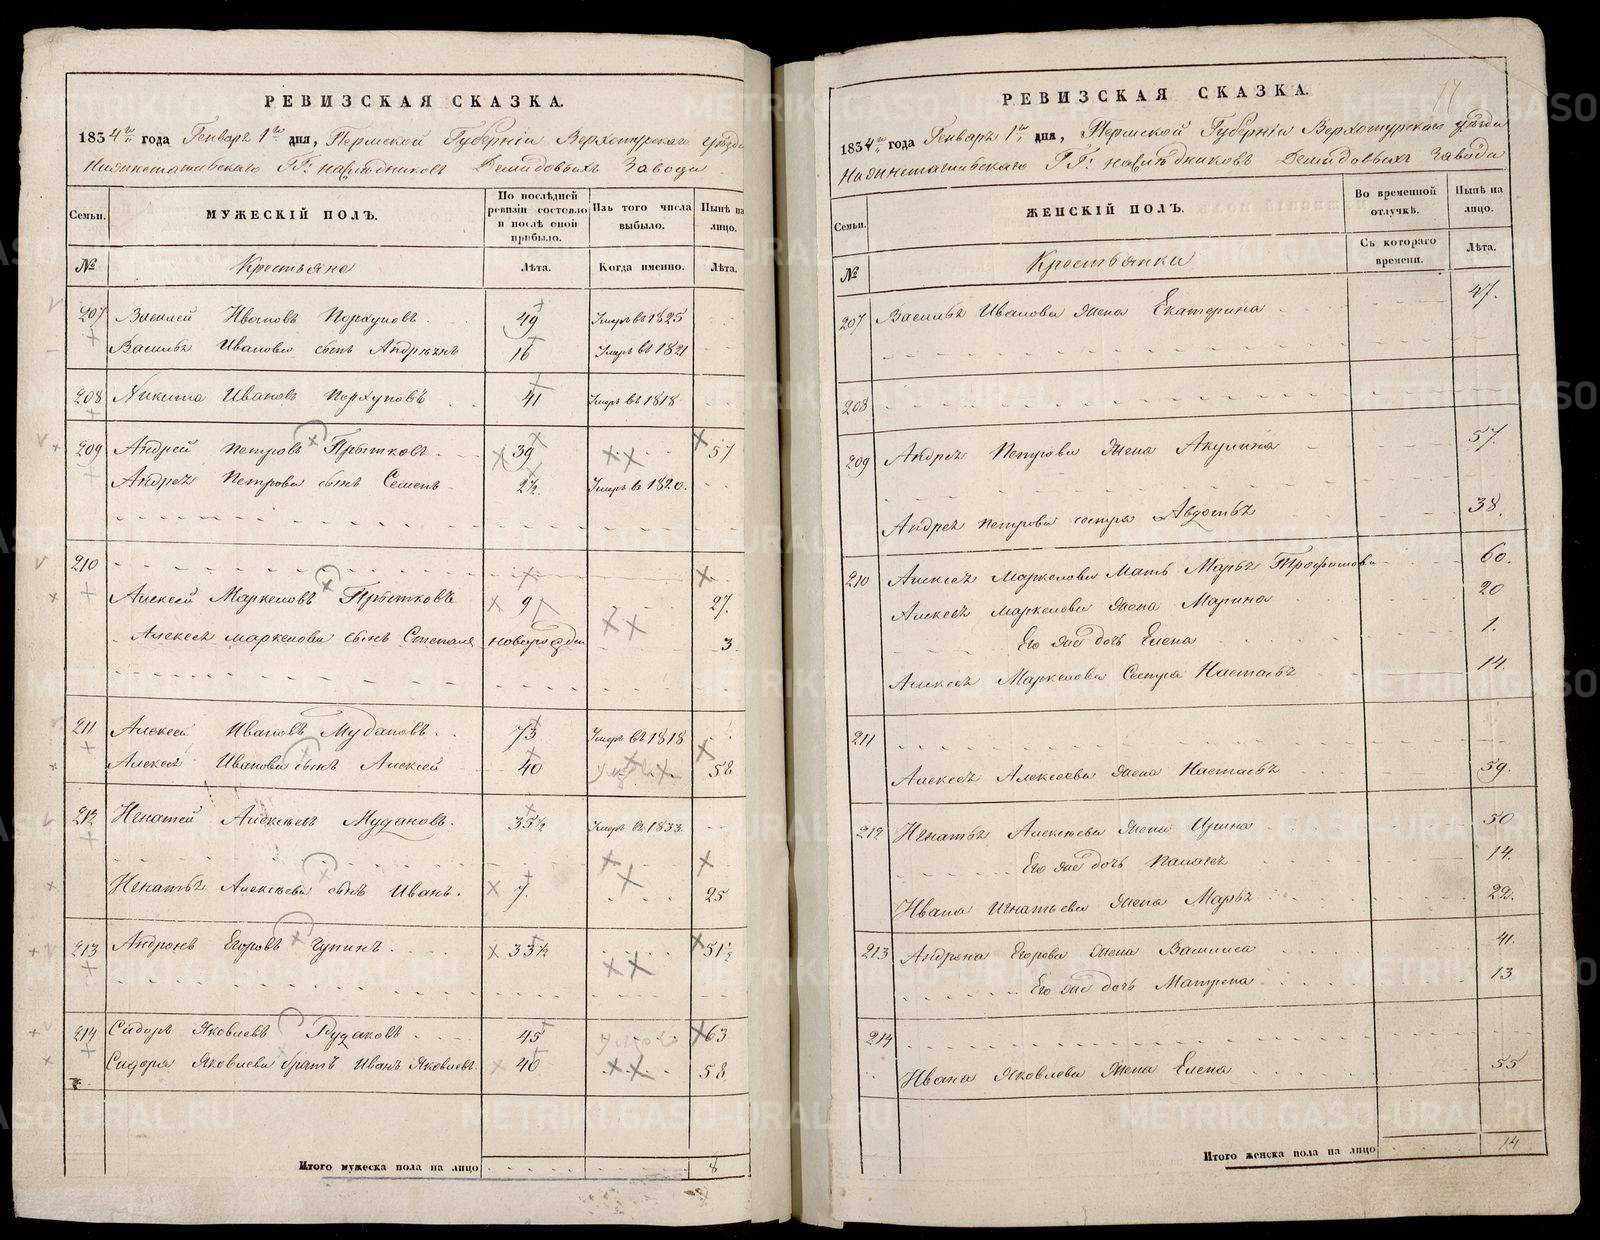 РЕВИЗСКАЯ СКАЗКА.
1834го года Генваря 1го дня, Пермской Губерніи Верхотурскаго уѣзда
Нижнетагильскаго ГГ: наслѣдниковъ Демидовыхъ Завода
Семьи. МУЖЕСКІЙ ПОЛЪ. По послѣдней ревизіи состояло и послѣ оной прибыло. Изъ того числа выбыло. Нынѣ на лицо.
№ Крестьяне Лѣта. Когда именно. Лѣта.
207 Василей Ивановъ 49 Умеръ въ 1825
Василья Иванова сынъ 16 Умеръ въ 1821
208 Никита Ивановъ 41 Умеръ въ 1818
209 Андрей Петровъ Прытковъ 39 57
Андрея Петрова сынъ Семенъ 2½ Умеръ въ 1820.
210
Алексей Маркеловъ Прытковъ 9 27.
Алексея Маркелова сынъ Степанъ новорожден 3
211 Алексей Ивановъ 73 Умеръ въ 1818
Алексея Иванова сынъ Алексей 40 58
212 Игнатей Алексѣевъ 35½ Умеръ въ 1833.
Игнатья Алексѣева сынъ Иванъ. 7. 25
213 Андронъ Егоровъ Чупинъ. 33½ 51½
214 Сидоръ Яковлевъ Рудаковъ 45 63
Сидора Яковлева братъ Иванъ Яковлевъ. 40 58
Итого мужеска пола на лицо 8
РЕВИЗСКАЯ СКАЗКА.
1834го года Генваря 1го дня, Пермской Губерніи Верхотурскаго уѣзда
Нижнетагильскаго ГГ: наслѣдниковъ Демидовыхъ Завода
Семьи. ЖЕНСКІЙ ПОЛЪ. Во временной отлучкѣ. Нынѣ на лицо.
№ Крестьянки Съ котораго времени. Лѣта.
207 Василья Иванова жена Екатерина 47.
208
209 Андрея Петрова жена Акулина 57.
Андрея Петрова сестра Авдотья 38.
210 Алексея Маркелова мать Марья Трофимова 60.
Алексея Маркелова жена Марина 20
Его же дочь Елена 1.
Алексея Маркелова Сестра Настасья 14.
211
Алексея Алексеева жена Настасья 59.
212 Игнатья Алексѣева жена Ирина 50
Его же дочь Палагея 14.
Ивана Игнатьева жена Марья 22.
213 Андрона Егорова жена Василиса 41.
Его же дочь Матрена 13
214
Ивана Яковлева жена Елена 55
Итого женска пола на лицо 14
METRIKI.GASO-URAL.RU